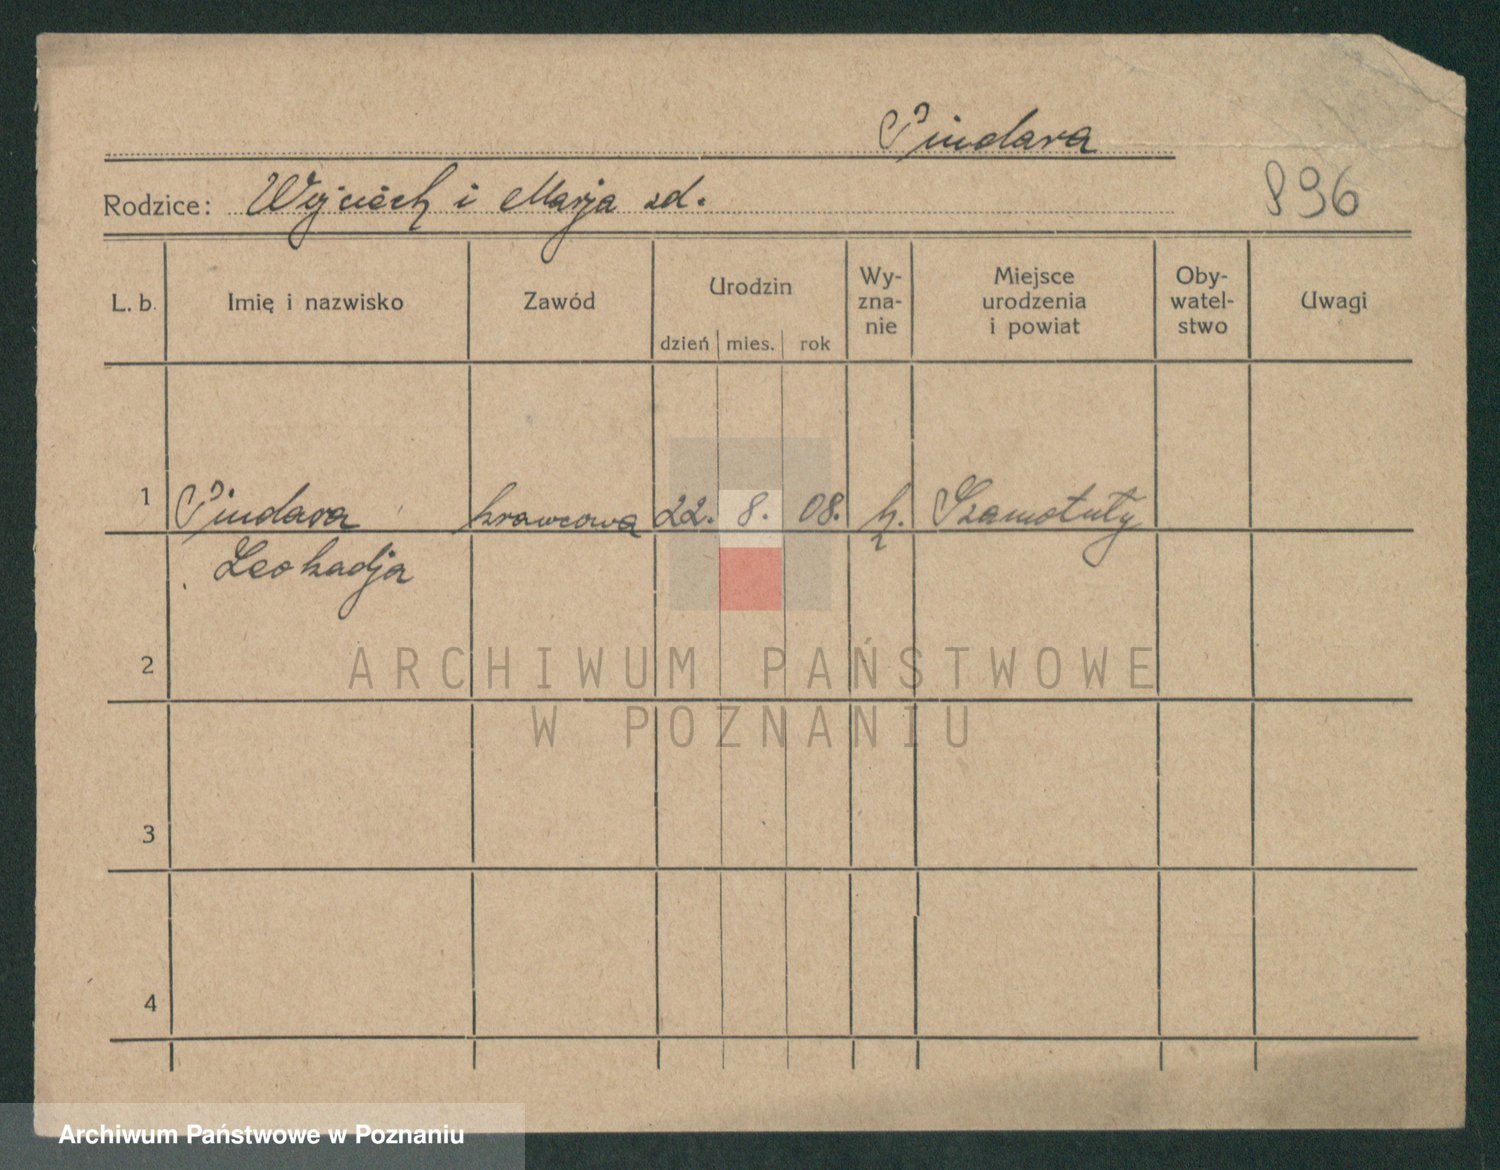 Pindara
Rodzice: Wojciech i Marja zd.
896
L. b. Imię i nazwisko Zawód Urodzin Wy-zna-nie Miejsce urodzenia i powiat Oby-watel-stwo Uwagi
dzień mies. rok
1 Pindara krawcowa 22. 8. 08. k. Szamotuły
Leokadja
2
ARCHIWUM PAŃSTWOWE
W POZNANIU
3
4
Archiwum Państwowe w Poznaniu